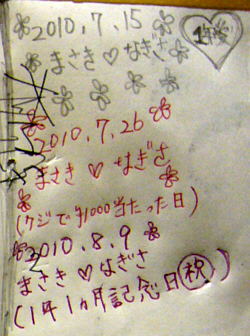 2010.7.15
まさき♡なぎさ
2010.7.26
まさき♡なぎさ
(クジで¥1000当たった日)
2010.8.9
まさき♡なぎさ
(1年1ヵ月記念日㊗)